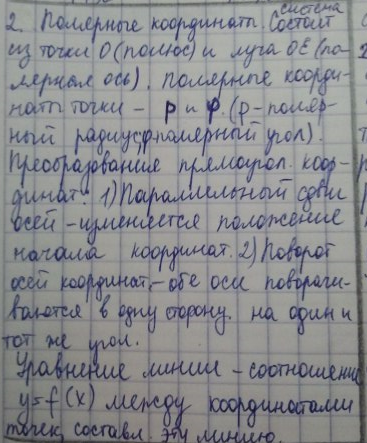 система
2. Полярные координат. Состоит
из точки О (полюс) и луча ОЕ (по-
лярная ось). Полярные коорди-
наты точки – р и φ. (р – поляр-
ный радиус, φ полярный угол).
Преобразования прямоугол. коор-
динат: 1) Параллельный сдвиг
осей – изменяется положение
начала координат. 2) Поворот
осей координат – обе оси поворачи-
ваются в одну сторону на один и
тот же угол.
Уравнение линии – соотношение
y = f(x) между координатами
точек, составл. эту линию.